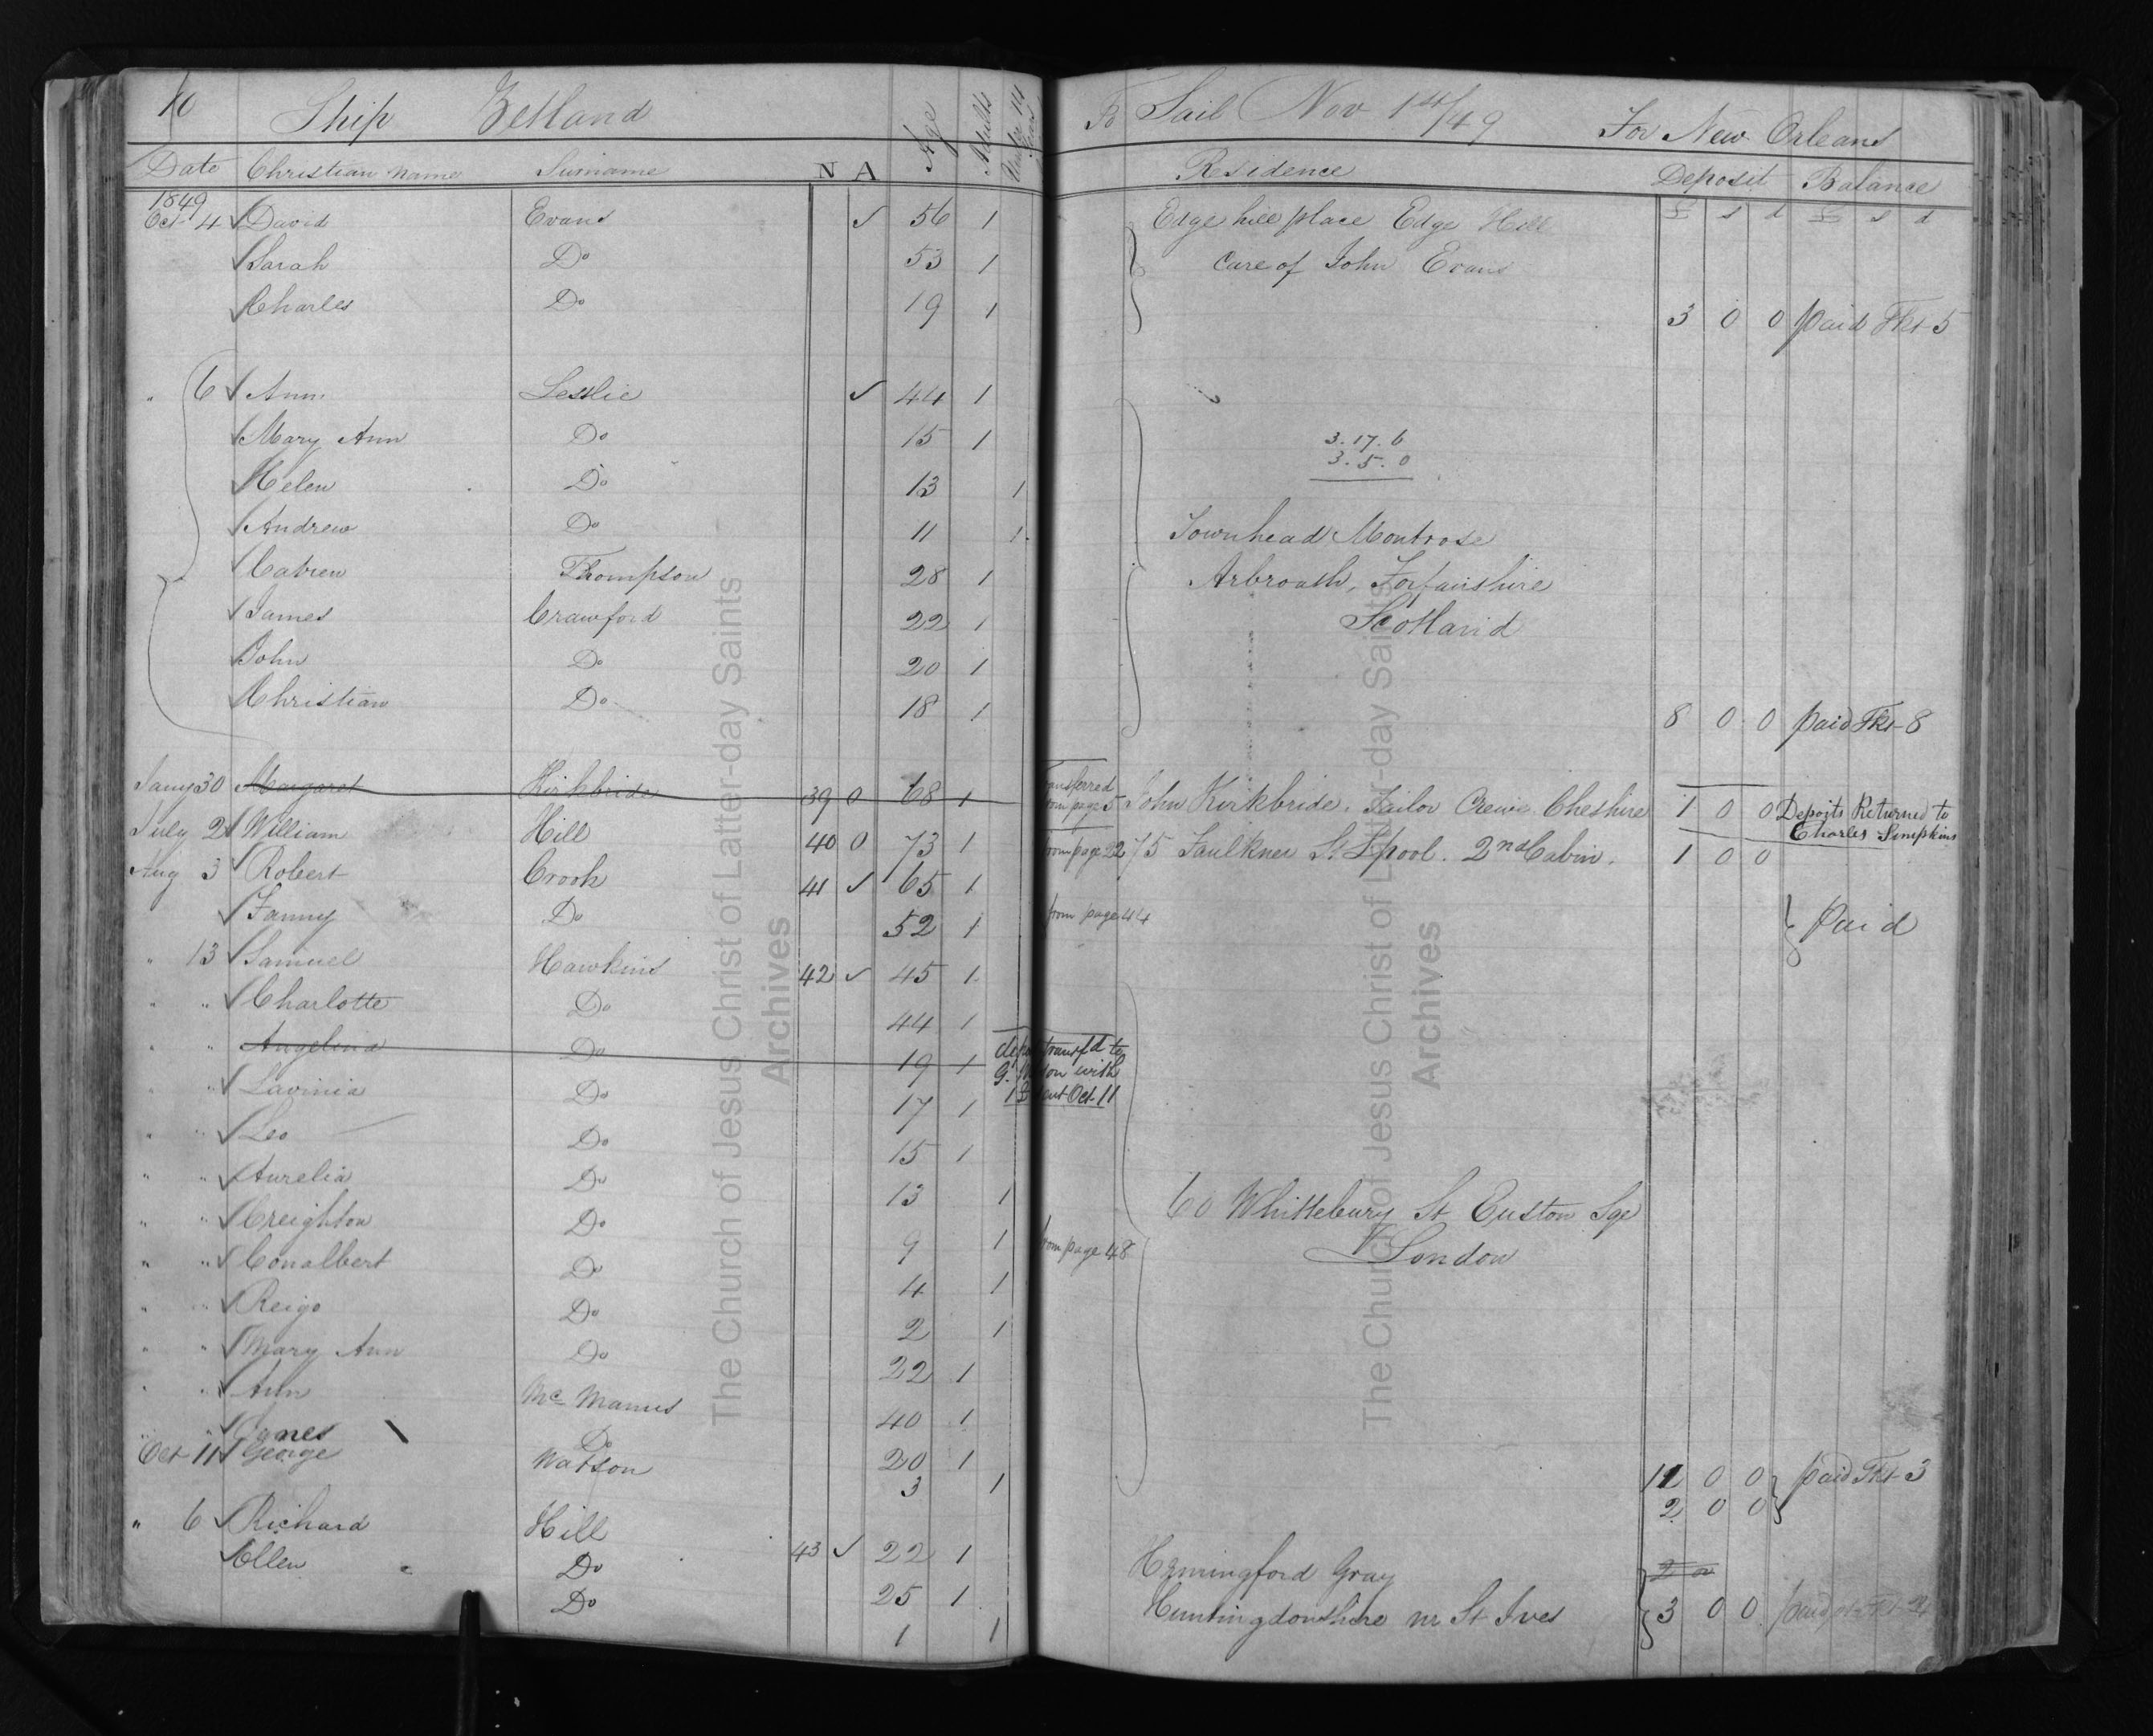 10 Ship Zetland To Sail Nov 1st/49 For New Orleans
Date Christian Name Surname N A Age Adults Under 14 Years Residence Deposit Balance
1849 £ s d £ s d
Oct 4 David Evans ✓ 56 1 Edge hill place Edge Hill
Sarah Do 53 1 Care of John Evans
Charles Do 19 1 3 0 0 paid Tkt 5
" 6 Ann Lesslie ✓ 44 1
Mary Ann Do 15 1 3.17.6
3.5.0
Helen Do 13 1
Andrew Do 11 1 Townhead Montrose
Catrien Thompson 28 1 Arbroath, Forfairshire
James Crawford 22 1 Scotland
John Do 20 1
Christian Do 18 1 8 0 0 paid Tkt 8
Jany 30 Margaret Kirkbride 39 0 68 1 Transferred from page 5 John Kirkbride. Tailor Crewe Cheshire 1 0 0 Deposits Returned to Charles Simpkins
July 21 William Hill 40 0 73 1 from page 22 75 Faulkner St Lpool. 2nd Cabin. 1 0 0
Aug 3 Robert Crook 41 ✓ 65 1
Fanny Do 52 1 from page 44 paid
" 13 Samuel Hawkins 42 ✓ 45 1
" " Charlotte Do 44 1
" " Angelina Do 19 1 transfd to
G. with
Oct 11
" " Lavinia Do 17 1
" " Leo Do 15 1
" " Aurelia Do 13 1
" " Creighton Do 9 1 60 Whittlebury St Euston Sqe
" " Conalbert Do 4 1 from page 48 London
" " Reigo Do 2 1
" " Mary Ann Do 22 1
" " Ann Mc Manus 40 1
" " Agnes Do 20 1 11 0 0 paid Tkt 3
Oct 11 George Watson 3 1 2 0 0
" 6 Richard Hill 43 ✓ 22 1 Hemingford Gray
Ellen Do 25 1 Huntingdonshire nr St Ives 3 0 0 paid
Do 1 1
The Church of Jesus Christ of Latter-day Saints
Archives
The Church of Jesus Christ of Latter-day Saints
Archives